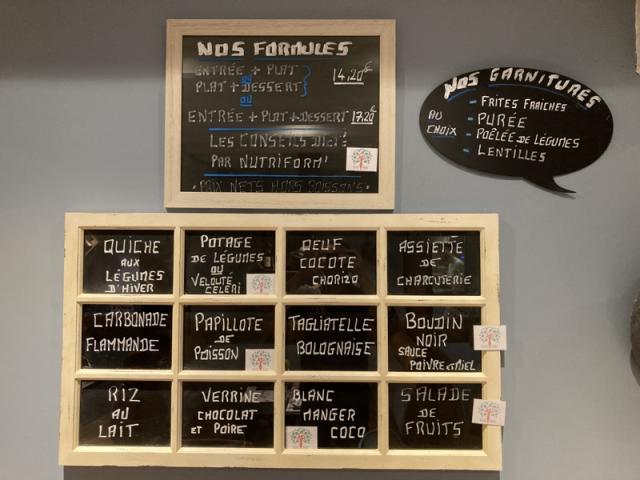 NOS FORMULES
ENTRÉE + PLAT
OU
PLAT + DESSERT
14,20€
OU
ENTRÉE + PLAT + DESSERT 17,20€
LES CONSEILS DIET':
PAR NUTRIFORM'
• PRIX NETS HORS BOISSONS •
NOS GARNITURES
AU
CHOIX
- FRITES FRAICHES
- PURÉE
- POÊLÉE DE LÉGUMES
- LENTILLES
QUICHE
AUX
LÉGUMES
D'HIVER
POTAGE
DE LÉGUMES
OU
VELOUTÉ
CELERI
OEUF
COCOTE
CHORIZO
ASSIETTE
DE
CHARCUTERIE
CARBONADE
FLAMMANDE
PAPILLOTE
DE
POISSON
TAGLIATELLE
BOLOGNAISE
BOUDIN
NOIR
SAUCE
POIVRE ET MIEL
RIZ
AU
LAIT
VERRINE
CHOCOLAT
ET POIRE
BLANC
MANGER
COCO
SALADE
DE
FRUITS